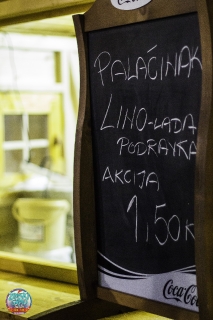 Coca-Cola
PALAČINAK
LINO-LADA
PODRAVKA
AKCIJA
1,50 K
Coca-Cola